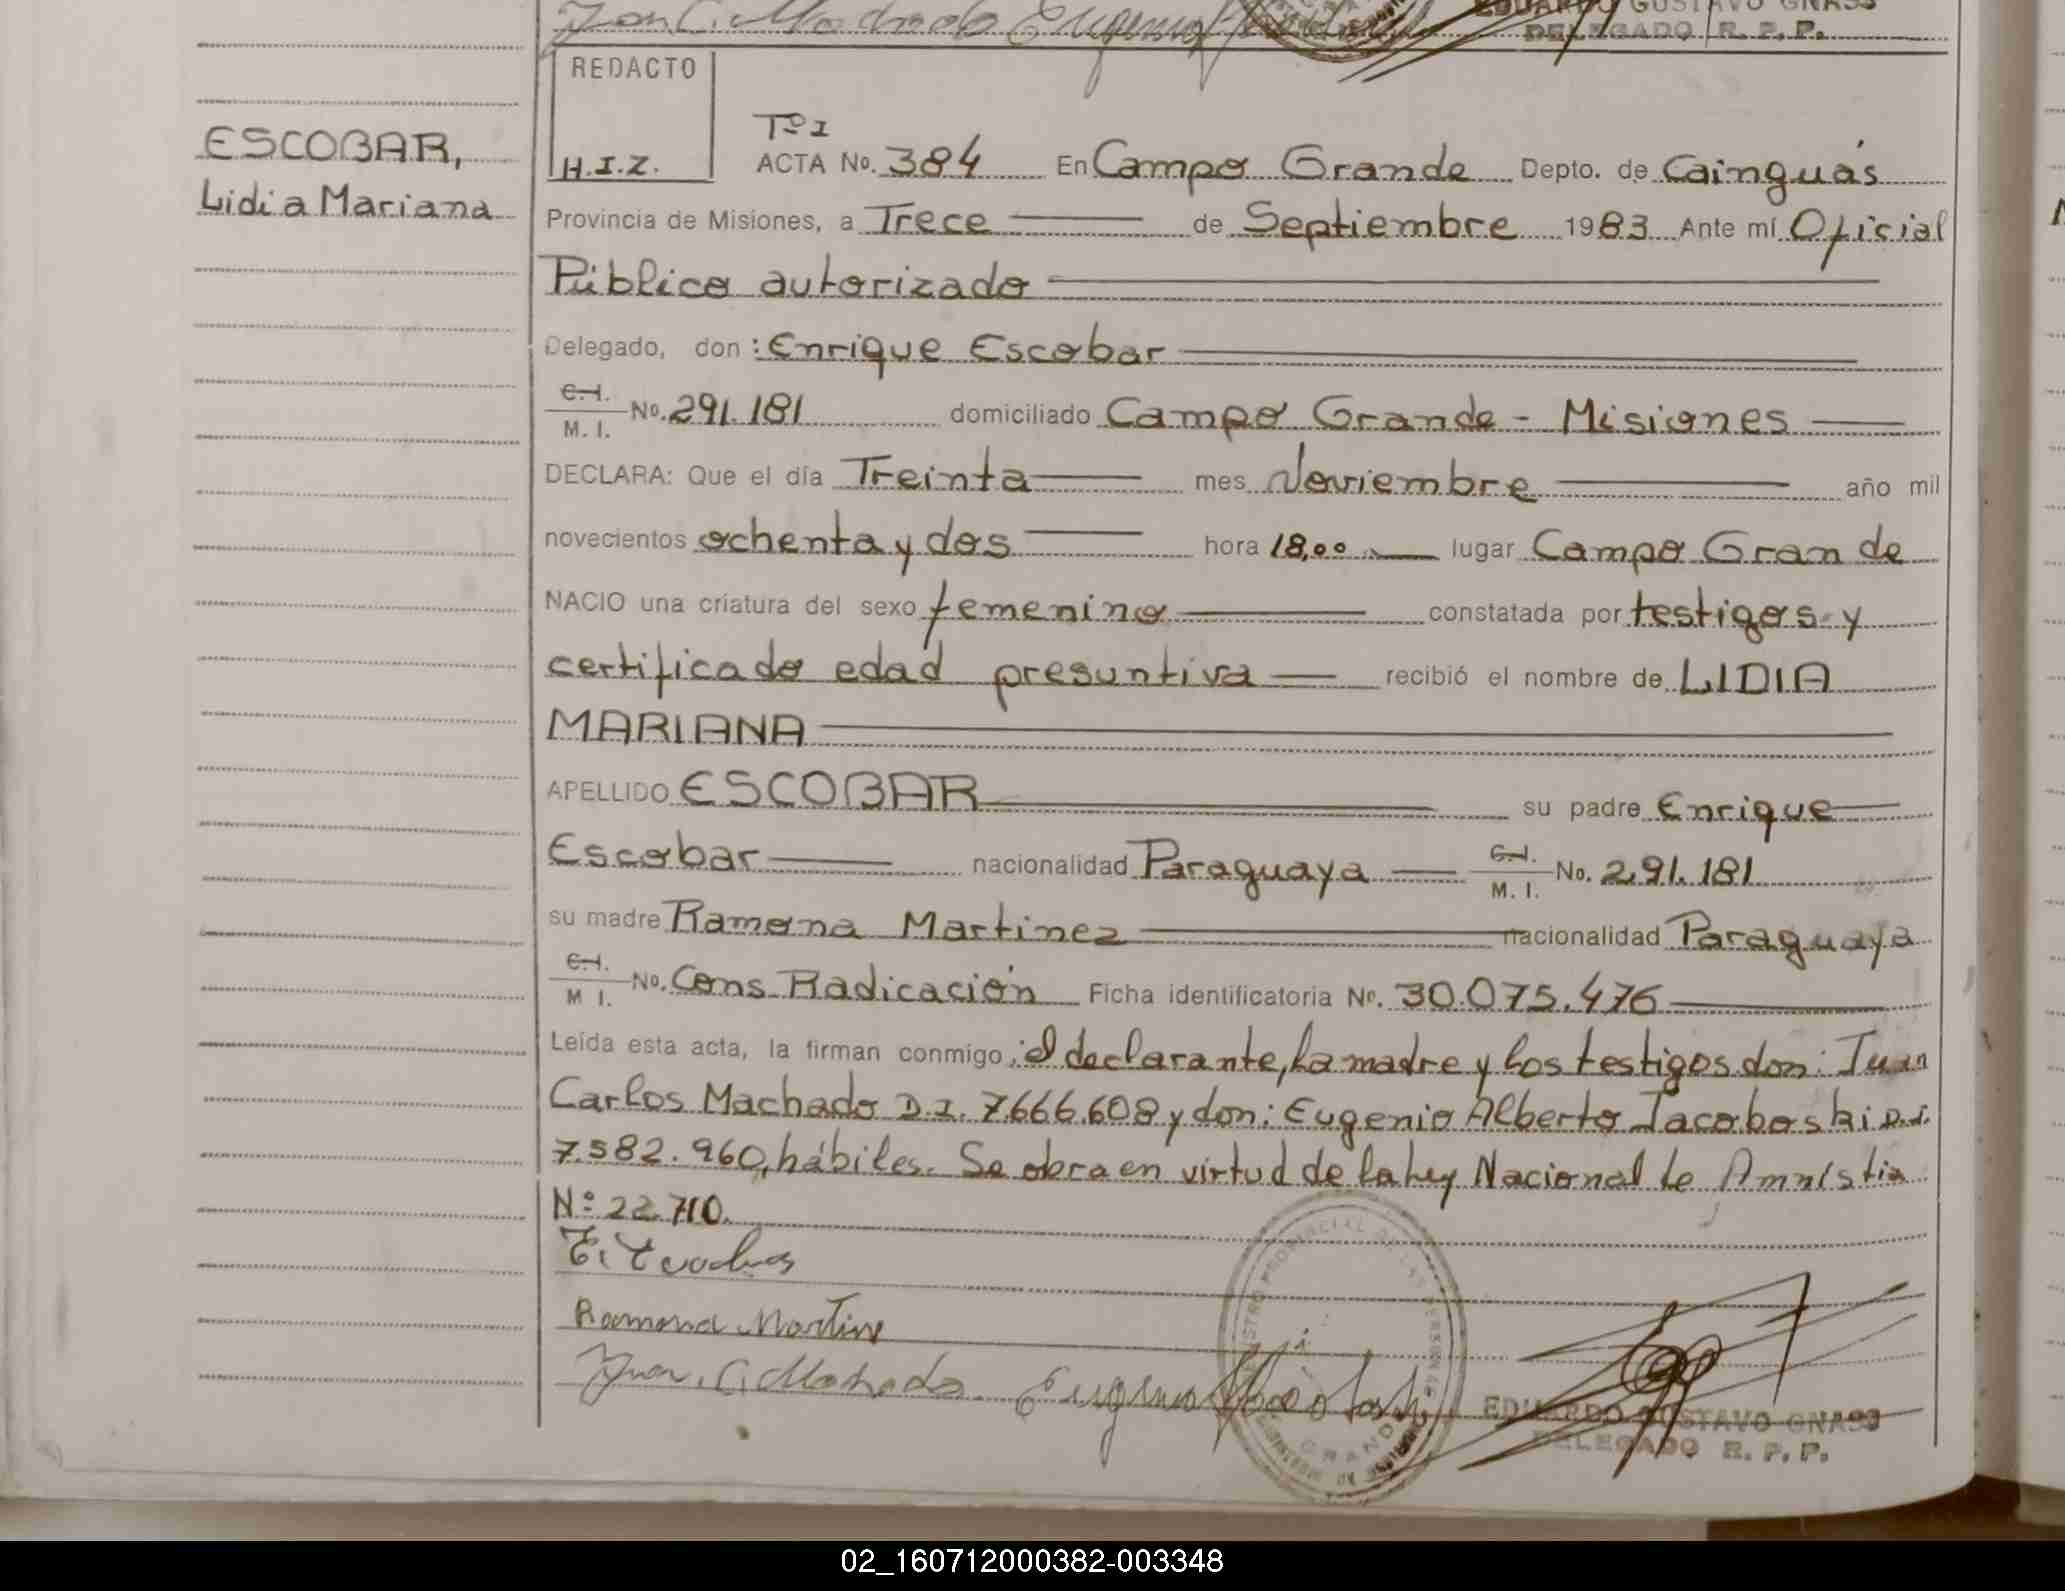 Juan C. Machado Eugenio
EDUARDO GUSTAVO GNASS
DELEGADO R. P. P.
REDACTO
H.I.Z.
ESCOBAR,
Lidia Mariana
Tº I
ACTA No. 384 En Campo Grande Depto. de Cainguás
Provincia de Misiones, a Trece de Septiembre 1983 Ante mí Oficial
Público autorizado
Delegado, don: Enrique Escobar
C.I.
M. I. No. 291.181 domiciliado Campo Grande - Misiones
DECLARA: Que el día Treinta mes Noviembre año mil
novecientos ochenta y dos hora 18,00 lugar Campo Grande
NACIO una criatura del sexo femenino constatada por testigos y
certificado edad presuntiva recibió el nombre de LIDIA
MARIANA
APELLIDO ESCOBAR su padre Enrique
Escobar nacionalidad Paraguaya C.I. M. I. No. 291.181
su madre Ramona Martinez nacionalidad Paraguaya
C.I.
M I. No. Cons Radicación Ficha identificatoria Nº. 30.075.476
Leída esta acta, la firman conmigo: el declarante, La madre y Los testigos don: Juan
Carlos Machado D.I. 7.666.608 y don: Eugenio Alberto Jacoboski D.I.
7.582.960, hábiles. Se obra en virtud de la Ley Nacional de Amnistia
Nº 22.710.
Ramona Martine
Juan C. Machado Eugenio
GRANDE
EDUARDO GUSTAVO GNASS
DELEGADO R. P. P.
02_160712000382-003348